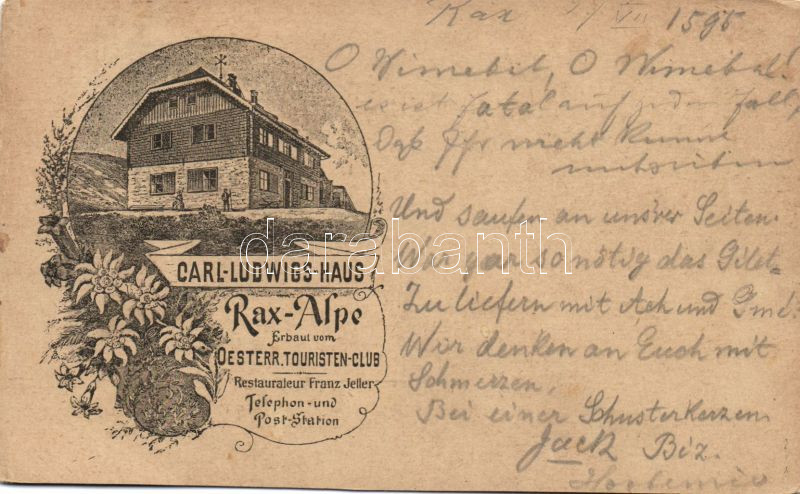 Rax VII 1895
O Wimebit, O Wimebal!
es ist fatal auf jeden Fall,
Daß Ihr nicht kunne
mitreiten
Und saufen an uns'rer Seiten.
Wir gar so nötig das Gilet
Zu liefern mit Ach und
Wir denken an Euch mit
Schmerzen,
Bei einer Schusterkerzen.
Jack Biz.
CARL-LUDWIGS-HAUS
Rax-Alpe
Erbaut vom
OESTERR. TOURISTEN-CLUB
Restaurateur Franz Jeller
Telephon- und
Post-Station
darabanth